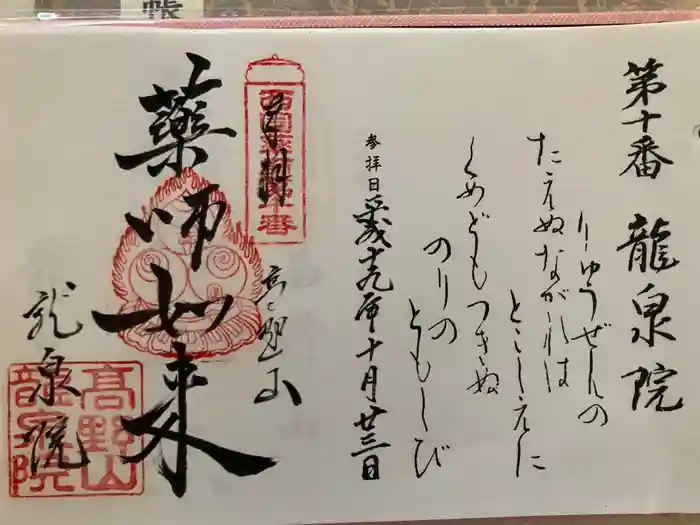 第十番 龍泉院
りゅうぜんの
たえぬながれは
とこしえに
くめどもつきぬ
のりの
ともしび
参拝日 平成十九年十月廿三日
奉拝
西国薬師第十番
高野山
薬師如来
龍泉院
高野山
龍泉院
帳